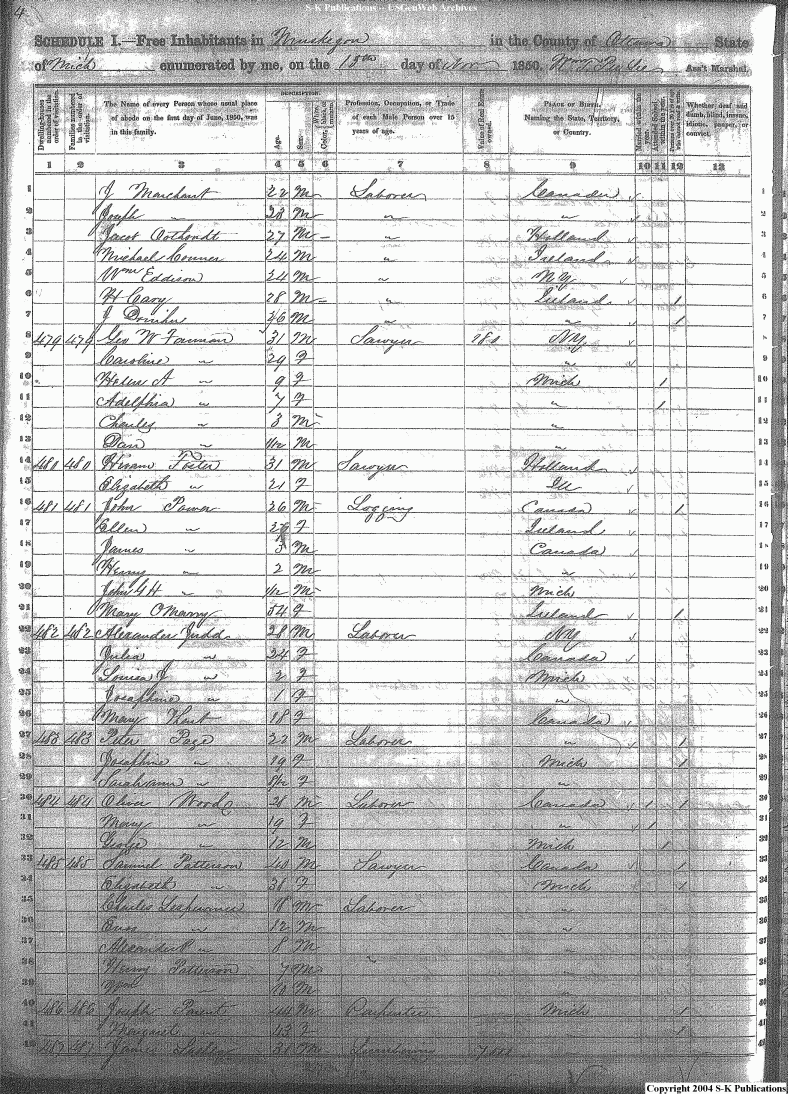 S-K Publications -- USGenWeb Archives
4
SCHEDULE I.—Free Inhabitants in Muskegon in the County of Ottawa State
of Mich enumerated by me, on the 15th day of Nov 1850. Ass't Marshal.
Dwelling-houses numbered in the order of visitation. Families numbered in the order of visitation. The Name of every Person whose usual place of abode on the first day of June, 1850, was in this family. DESCRIPTION. Age. Sex. Color, White, black, or mulatto. Profession, Occupation, or Trade of each Male Person over 15 years of age. Value of Real Estate owned. PLACE OF BIRTH. Naming the State, Territory, or Country. Married within the year. Attended School within the year. Whether deaf and dumb, blind, insane, idiotic, pauper, or convict.
1 2 3 4 5 6 7 8 9 10 11 12 13
1 J Marchant 22 M Laborer Canada 1
2 Joseph " 28 M " " 2
3 Jacob 27 M " Holland 3
4 Michael Conner 24 M " Ireland 4
5 Wm Eddison 24 M " N.Y. 5
6 H Cary 28 M " Ireland 1 6
7 J 26 M " 1 7
8 479 479 Geo W Fannan 31 M Sawyer NY 8
9 Caroline " 29 F " 9
10 Helen A " 9 F Mich 1 10
11 Adelphia " 7 F " 1 11
12 Charles " 3 M " 12
13 Dan " M " 13
14 480 480 Hiram Foster 31 M Sawyer Holland 14
15 Elizabeth " 21 F Ill 15
16 481 481 John Power 26 M Logging Canada 1 16
17 Ellen " F Ireland 17
18 James " 3 M Canada 18
19 Henry " 2 M " 19
20 John G H " M Mich 20
21 Mary O 54 F Ireland 1 21
22 482 482 Alexander Judd 28 M Laborer NY 22
23 Julia " 24 F Canada 23
24 Louisa J " 2 F Mich 24
25 Josephine " 1 F " 25
26 Mary 18 F Canada 26
27 483 483 Peter Page 22 M Laborer " 1 27
28 Josephine " 19 F Mich 1 28
29 Sarahann " 8/12 F " 29
30 484 484 Oliver Wood 28 M Laborer Canada 1 1 30
31 Mary " 19 F " 1 31
32 George " 12 M Mich 1 32
33 485 485 Samuel Patterson 40 M Sawyer Canada 1 33
34 Elizabeth " 36 F Mich 1 34
35 Charles 18 M Laborer " 35
36 " 12 M " 36
37 Alexander " 8 M " 37
38 Henry Patterson 7 M " 38
39 Wm " 10 M " 39
40 486 486 Joseph Parent 44 M Carpenter Mich 1 40
41 Margaret " 43 F " 1 41
42 487 487 James M 42
Copyright 2004 S-K Publications